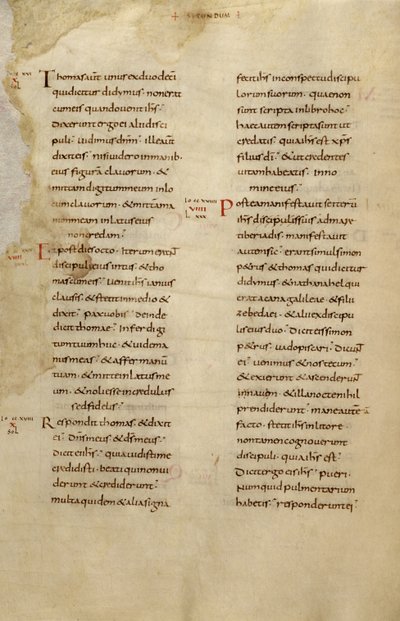 + SECUNDUM
Thomas aut unus ex duodeci
qui dicitur didymus · non erat
cum eis quando venit ihs ·
Dixerunt ergo ei alii disci
puli · vidimus dnm · ille aut
dixit eis · nisi videro in manib ·
eius figura clavorum · &
mittam digitum meum in lo
cum clavorum · & mittam a
num meam in latus eius
non credam ·
Et post dies octo · iterum erant
discipuli eius intus · & tho
mas cum eis · Venit ihs ianuis
clausis · & stetit in medio &
dixit · pax vobis · deinde
dicit thomae · Infer digi
tum tuum huc · & vide ma
nus meas · & affer manu
tuam · & mitte in latus me
um · & noli esse incredulus
sed fidelis ·
Respondit thomas · & dixit
ei · Dns meus & ds meus ·
Dicit ei ihs · quia vidisti me
credidisti · beati qui non vi
derunt & crediderunt ·
multa quidem & alia signa
fecit ihs in conspectu discipu
lorum suorum · quae non
sunt scripta in libro hoc ·
haec autem scripta sunt ut
credatis · quia ihs est xps
filius di · & ut credentes
vitam habeatis · in no
mine eius ·
Postea manifestavit se iterū
ihs discipulis suis ad mare
tiberiadis · manifestavit
autem sic · erant simul simon
p&rus & thomas qui dicitur
didymus · & nathanahel qui
erat a cana galileae · & filii
zebedaei · & alii ex discipu
lis eius duo · Dicit eis simon
p&rus · vado piscari · Dicunt
ei · venimus & nos tecum ·
& exierunt & ascenderunt
in navem · & illa nocte nihil
prendiderunt · mane autē
facto · stetit ihs in litore ·
non tamen cognoverunt
discipuli · quia ihs est ·
Dicit ergo eis ihs · pueri ·
Numquid pulmentarium
habetis · responderunt ei ·